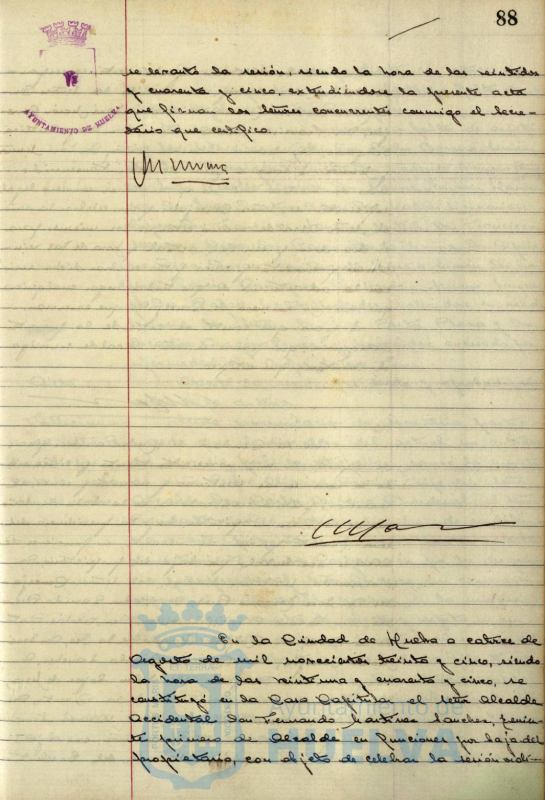 88
AYUNTAMIENTO DE HUELVA
se levantó la sesión, siendo la hora de las veintidos
y cuarenta y cinco, extendiéndose la presente acta
que firman los señores concurrentes conmigo el Secre-
tario que certifico.
En la Ciudad de Huelva a catorce de
Agosto de mil novecientos treinta y cinco, siendo
la hora de las veintiuna y cuarenta y cinco, se
constituyó en la Casa Capitular el señor Alcalde
Accidental Don Fernando Martinez Sanchez, Tenien-
te primero de Alcalde en funciones por baja del
propietario, con objeto de celebrar la sesión ordi-
Ayuntamiento de
HUELVA